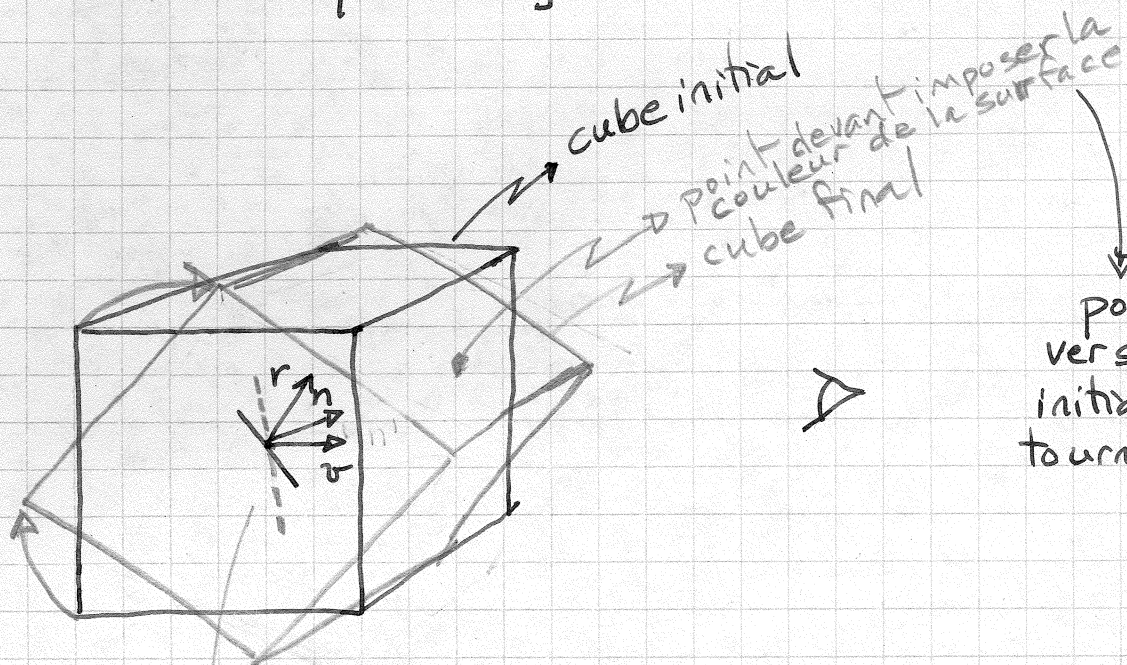 cube initial
point devant imposer la
couleur de la surface
cube final
r
n
v
"n"
po
vers
initia
tourn